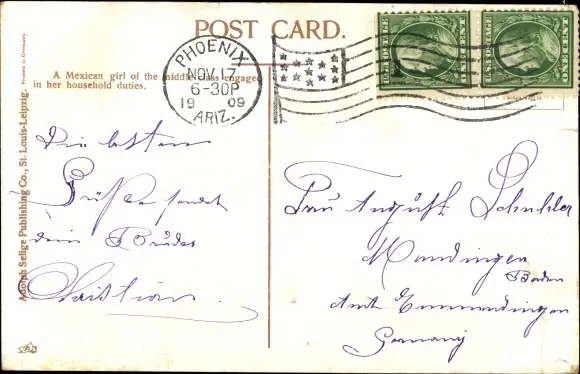 POST CARD.
A Mexican girl of the middle class engaged
in her household duties.
Adolph Selige Publishing Co., St. Louis-Leipzig. Printed in Germany
PHOENIX
NOV 17
6-30P
1909
ARIZ.
U.S. POSTAGE
ONE CENT
ONE CENT
Die besten
Grüße sendet
dein Bruder
Christian
Frau August Schuhler
Mundingen
Baden
Amt Emmendingen
Germany